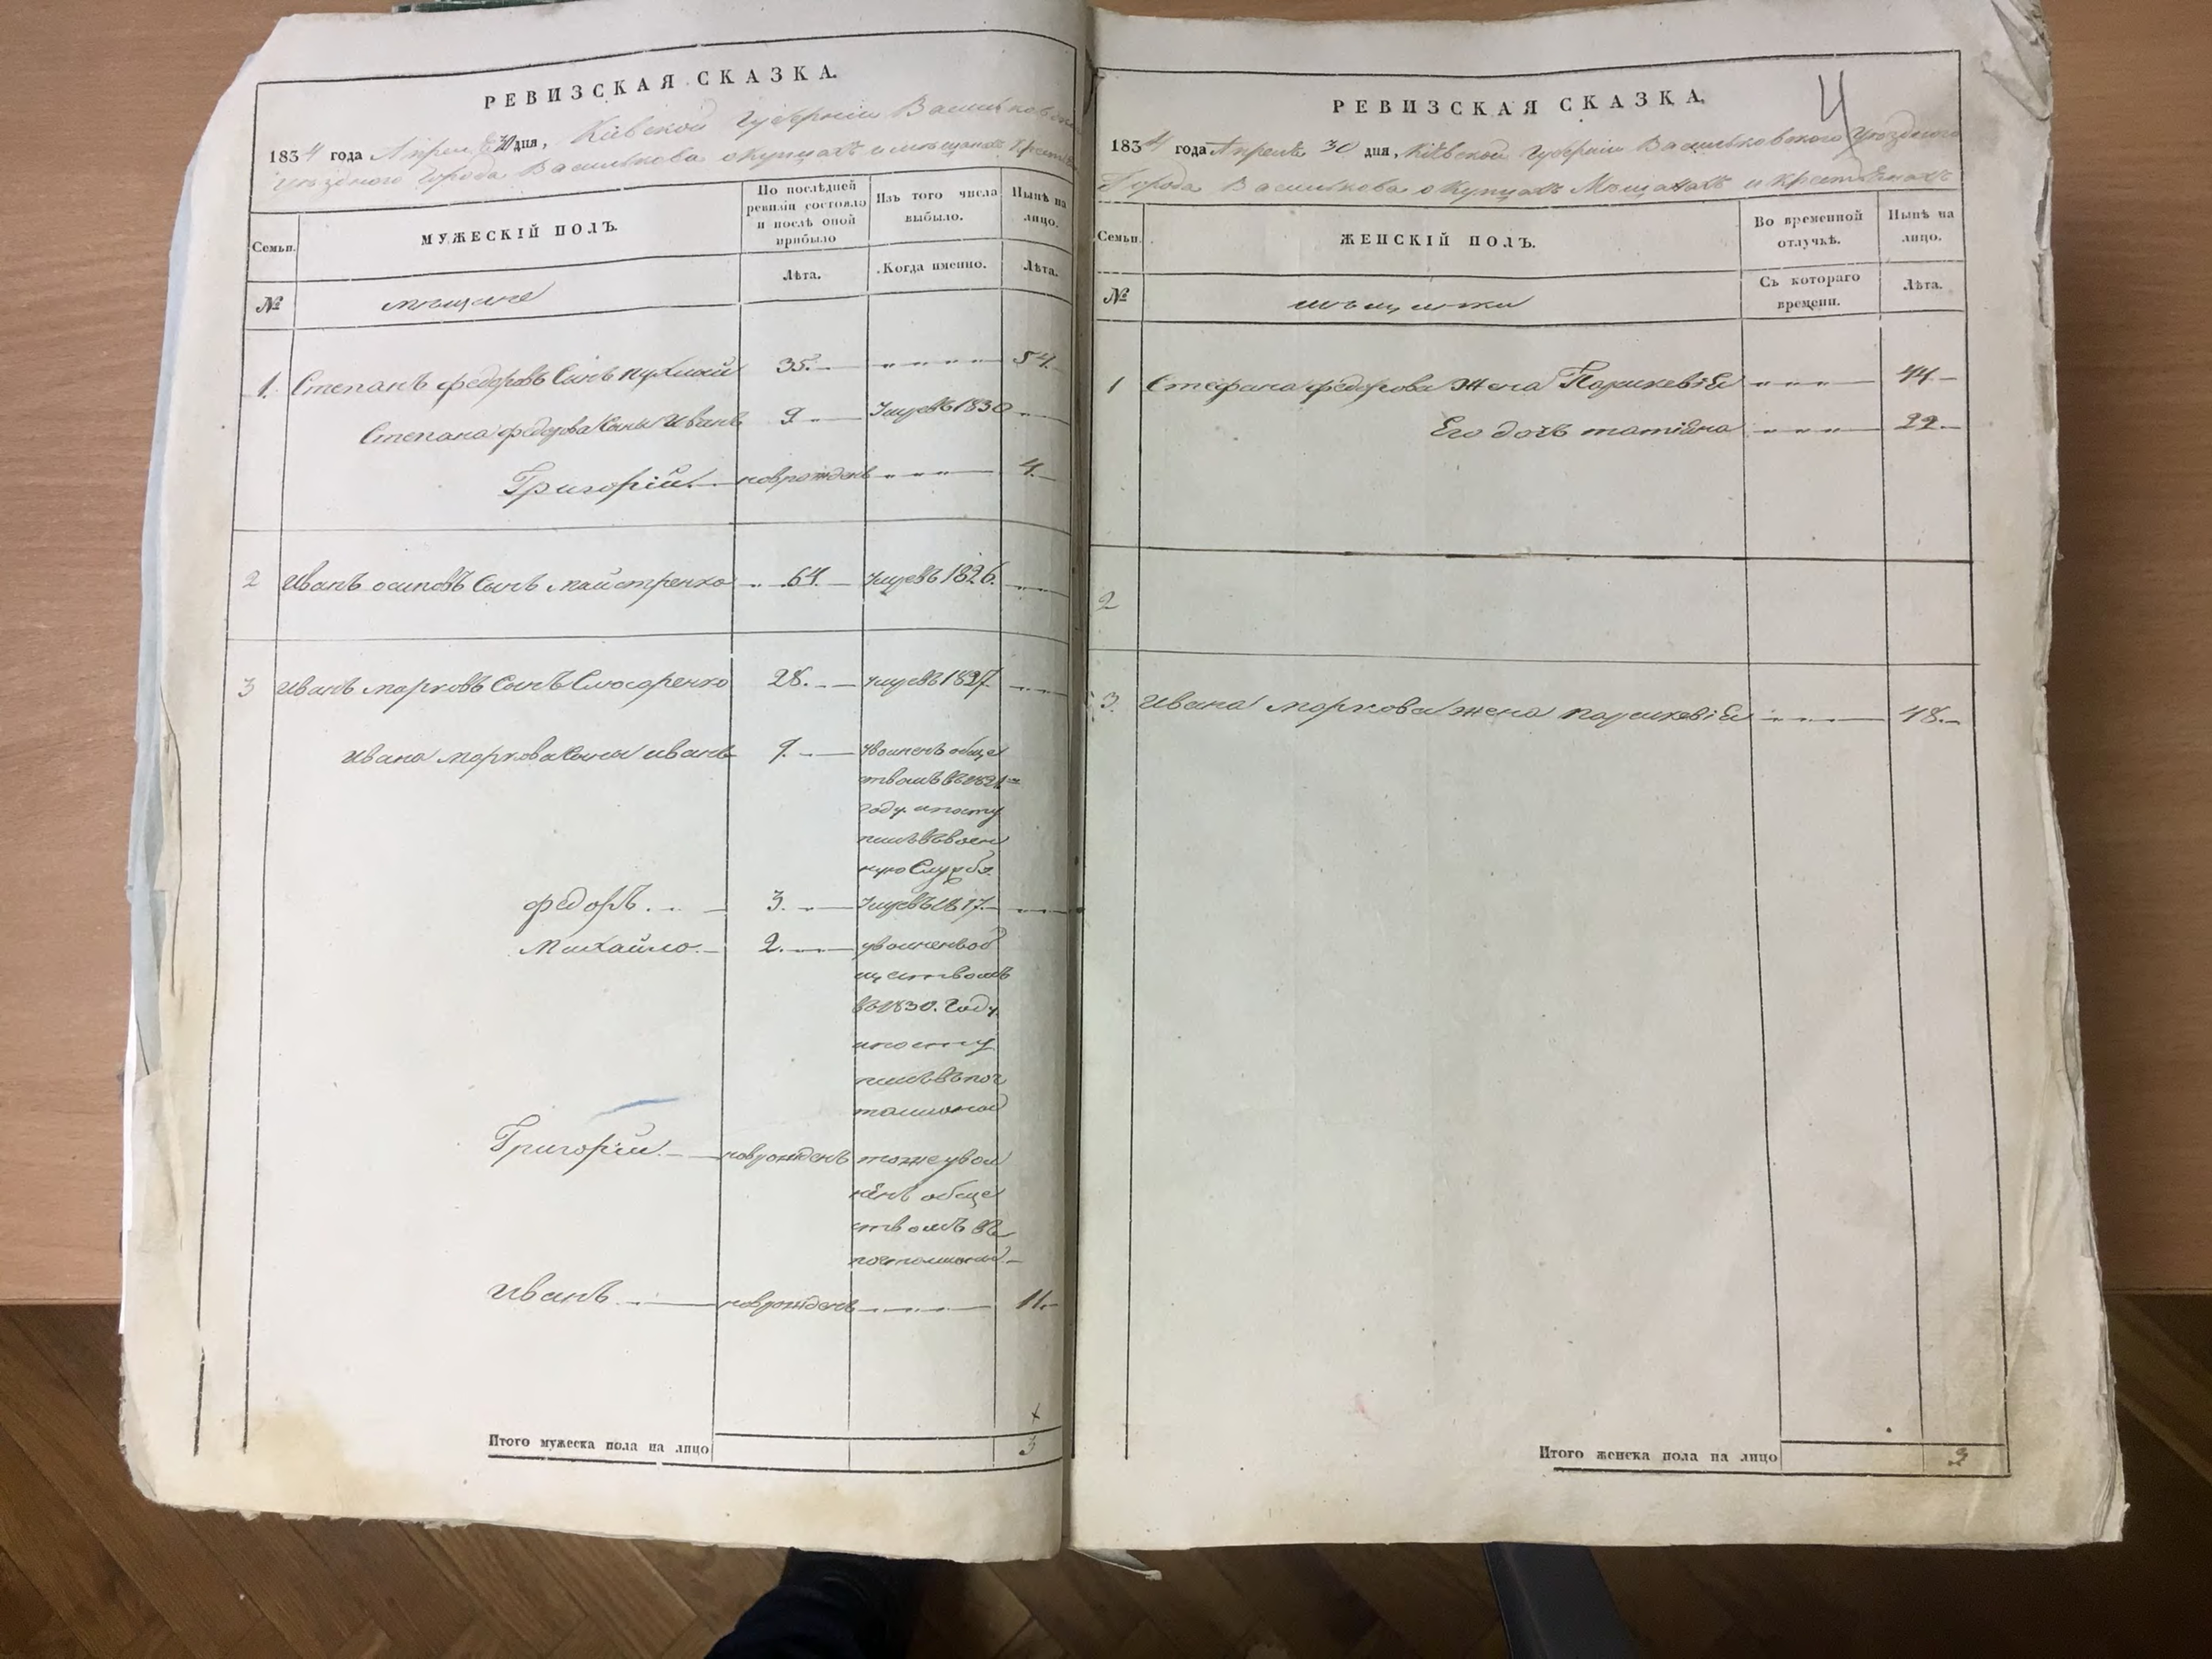 РЕВИЗСКАЯ СКАЗКА.
1834 года Апреля 30 дня, Кіевской Губерніи Васильковского
уѣздного Города Василькова о купцахъ и мѣщанахъ
Семьи.
МУЖЕСКІЙ ПОЛЪ.
По послѣдней ревизіи состояло и послѣ оной прибыло
Изъ того числа выбыло.
Нынѣ на лицо.
Лѣта.
Когда именно.
Лѣта.
№
мещане
1. Степанъ федоровъ Сынъ 35. 54.
Степана федорова Сыны Иванъ 9 Умревъ 1830
Григорій новрожденъ 4.
2 Иванъ осиповъ Сынъ майстренко 64. Умревъ 1826.
3 Иванъ марковъ Сынъ Слюсаренко 28. Умревъ 1827
Ивана маркова Сыны иванъ 9. уволненъ обще
ствомъ въ 1821
году и посту
пилъ въ воен
ную Службу.
федоръ. 3. Умревъ 1817.
Михайло. 2. уволненъ об
ществомъ
въ 1830. году
и посту
пилъ въ поч
талиони
Григорій. новрожденъ тоже увол
ненъ обще
ствомъ въ
почталиони
Иванъ новрожденъ 11.
Итого мужеска пола на лицо 3
4
РЕВИЗСКАЯ СКАЗКА.
1834 года Апреля 30 дня, Кіевской Губерніи Васильковского уѣздного
Города Василькова о купцахъ Мѣщанахъ и крестьянахъ
Семьи.
ЖЕНСКІЙ ПОЛЪ.
Во временной отлучкѣ.
Нынѣ на лицо.
Съ котораго времени.
Лѣта.
№
мѣщанки
1 Стефана федорова жена Параскевія 44.
Его дочь татіяна 22.
2
3. Ивана маркова жена параскевія 48.
Итого женска пола на лицо 3